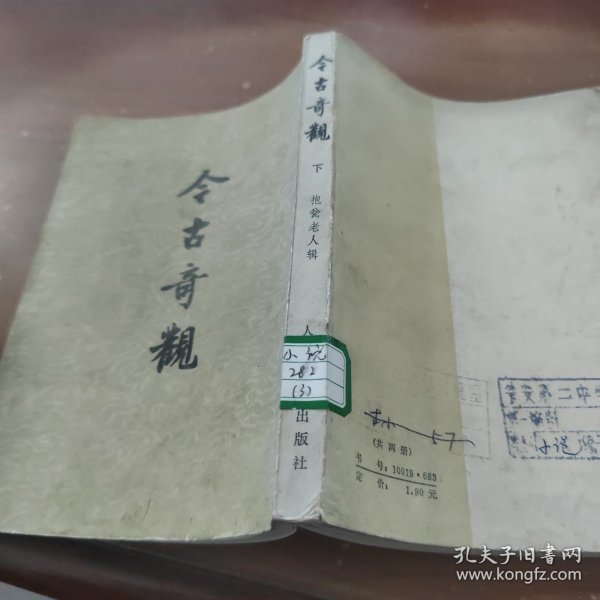 今古奇觀
今古奇觀
下
抱瓮老人辑
人
出版社
小说
282
(3)
57
(共两册)
书号:10019·683
定价:1.90元
孔夫子旧书网
www.kongfz.com